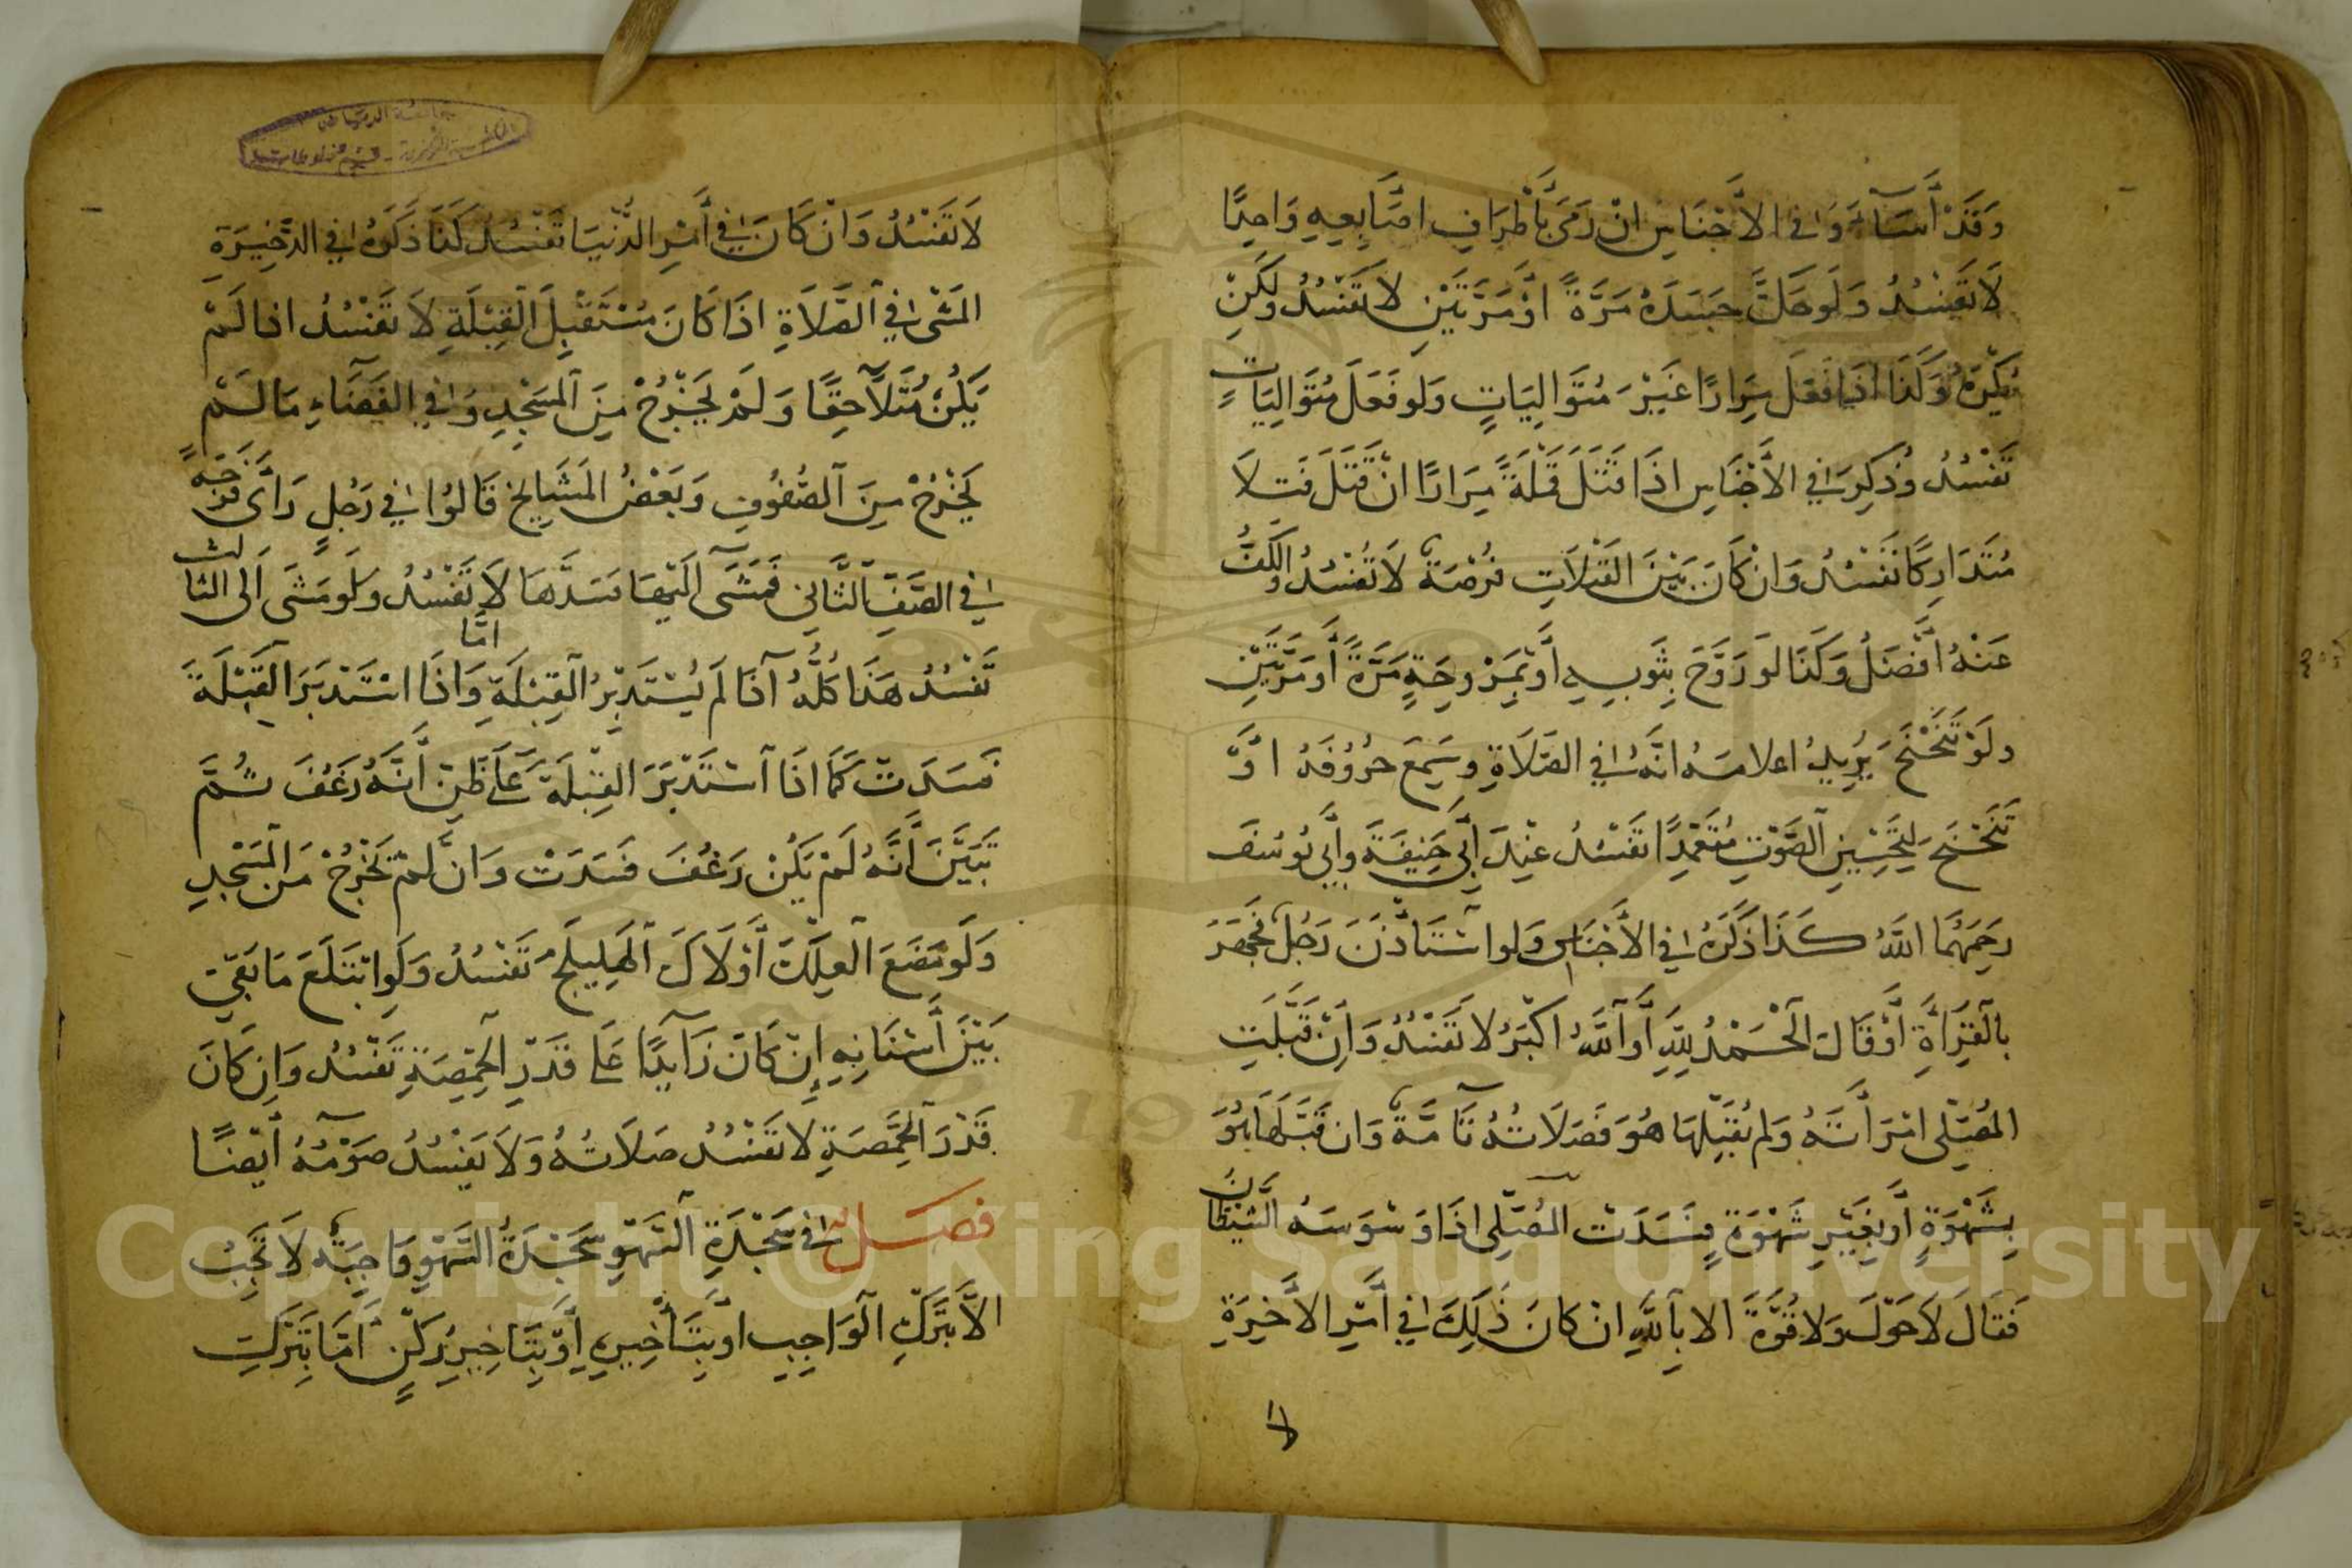 وَقَدْ أَسَآءَ وَفِي الأَجْنَاسِ اِنْ رَمَى بَأَطْرَافِ اَصَابِعِهِ وَاحِدًا
لَا تَفْسُدُ وَلَوحَكَّ جَسَدَهُ مَرَّةً اَوْ مَرَّتَيْنِ لَا تَفْسُدُ وَلَكِنْ
يُكْرَهُ وَكَذَا اذَا فَعَلَ مِرَارًا غَيْرَ مُتَوَالِيَاتٍ وَلَو فَعَلَ مُتَوَالِيَاتٍ
تَفْسُدُ وَذُكِرَ فِي الأَجْنَاسِ اذَا قَتَلَ قَمْلَةً مِرَارًا انْ قَتَلَ قَتلاً
مُتَدَارِكًا تَفْسُدُ وَانْ كَانَ بَيْنَ القَتَلَاتِ فُرْصَةٌ لَا تَفْسُدُ وَالكَفُّ
عَنْهُ أَفْضَلُ وَكَذَا لَو رَوَّحَ بِثَوبِهِ أَوْ بِمَرْوحَةٍ مَرَّةً أَو مَرَّتَيْنِ
ولَوْ تَنَحْنَحَ يُرِيدُ اعلامَهُ انَّهُ فِي الصَّلَاةِ وسَمِعَ حُرُوفَهُ اوْ
تَنَحْنَحَ لِتَحْسِينِ الصَّوْتِ مُتَعَمِّدًا تَفْسُدُ عِنْدَ أَبِي حَنِيفَةَ وأَبِي يُوسُفَ
رَحِمَهُمَا اللَّهُ كَذَا ذَكَرَهُ فِي الأَجْنَاسِ وَلو اسْتَأْذَنَ رَجُلٌ فَجَهَرَ
بِالْقِرَأَةِ أَوْ قَالَ الْحَمْدُ لِلَّهِ أَو اللَّهُ اكْبَرُ لا تَفْسُدُ وَاِنْ قَبَّلَتِ
المُصَلِّى امْرَأَتَهُ وَلم يُقَبِّلْهَا هُوَ فَصَلَاتُهُ تَآمَّةٌ وَان قَبَّلَهَا هُوَ
بِشَهْوَةٍ أَو بِغَيْرِ شَهْوَةٍ فَسَدَتْ المُصَلِّى اذَا وَسْوَسَهُ الشَّيْطَانُ
فَقَالَ لَا حَوْلَ وَلا قُوَّةَ الا بِاللَّهِ انْ كانَ ذَلِكَ فِي أَمْرِ الأَخِيرَةِ
لا
لَا تَفْسُدُ وَانْ كَانَ فِي أَمْرِ الدُّنْيَا تَفْسُدُ كَذَا ذَكَرَهُ فِي الذَّخِيرَةِ
المَشْى فِي الصَّلَاةِ اذَا كَانَ مُسْتَقْبِلَ الْقِبْلَةِ لَا تَفْسُدُ اذا لَمْ
يَكُنْ مُتَلَاحِقًا وَلَمْ يَخْرُجْ مِنَ الْمَسْجِدِ وَفِي الفَضَآءِ مَا لَمْ
يَخْرُجْ مِنَ الصُّفُوفِ وَبَعْضُ المَشَايِخِ قَالُوا فِي رَجُلٍ رَأَى فُرْجَةً
فِي الصَّفِّ الثَّانِي فَمَشَى الَيْهَا فَسَدَّهَا لَا تَفْسُدُ ولَو مَشَى الَى الثالث
تَفْسُدُ هَذَا كُلُّهُ اذَا لَم يَسْتَدْبِرُ القِبْلَةِ اَمَّا وَاذَا اسْتَدْبَرَ القِبْلَةَ
فَسَدَتْ كَمَا اذَا اسْتَدْبَرَ القِبْلَةَ عَلَى ظَنِّ أَنَّهُ رَعُفَ ثُمَّ
تَبَيَّنَ أَنَّهُ لَمْ يَكُنْ رَعُفَ فَسَدَتْ وَانْ لَمْ يَخْرُجْ مِنَ الْمَسْجِدِ
وَلَو مَضَغَ العِلْكَ أَوْ لَاكَ الْهَلِيلَجَ تَفْسُدُ وَلَوِ ابْتَلَعَ مَا بَقِيَ
بَيْنَ أَسْنَانِهِ إِنْ كَانَ زَآيِدًا عَلَى قَدْرِ الحِمَّصَةِ تَفْسُدُ وَاِن كَانَ
قَدْرَ الْحِمَّصَةِ لا تَفْسُدُ صَلَاتُهُ وَلَا يَفْسُدُ صَوْمُهُ ايْضًا
فصـل فِي سَجْدَةِ السَّهْوِ سَجْدَةُ السَّهْوِ وَاجِبَةٌ لَا تَجِبُ
الاَّ بِتَرْكِ الْوَاجِبِ اوْ بِتَأْخِيرِهِ أَوْ بِتَاخِيرِ رُكْنٍ أَمَّا بِتَرْكِ
Copyright © King Saud University